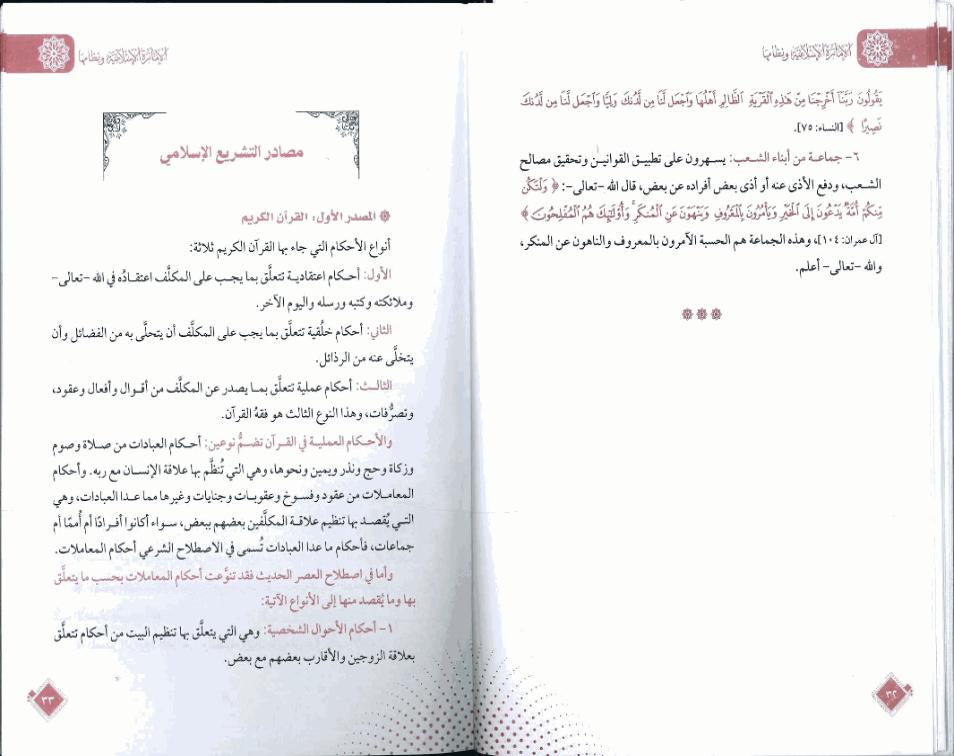 الإمارة الإسلامية ونظامها
يَقُولُونَ رَبَّنَآ أَخْرِجْنَا مِنْ هَٰذِهِ ٱلْقَرْيَةِ ٱلظَّالِمِ أَهْلُهَا وَٱجْعَل لَّنَا مِن لَّدُنكَ وَلِيًّا وَٱجْعَل لَّنَا مِن لَّدُنكَ
نَصِيرًا ﴾ [النساء: ٧٥].
٦- جماعة من أبناء الشعب: يسهرون على تطبيق القوانين وتحقيق مصالح
الشعب، ودفع الأذى عنه أو أذى بعض أفراده عن بعض، قال الله -تعالى-: ﴿ وَلْتَكُن
مِّنكُمْ أُمَّةٌ يَدْعُونَ إِلَى ٱلْخَيْرِ وَيَأْمُرُونَ بِٱلْمَعْرُوفِ وَيَنْهَوْنَ عَنِ ٱلْمُنكَرِ ۚ وَأُو۟لَٰٓئِكَ هُمُ ٱلْمُفْلِحُونَ ﴾
[آل عمران: ١٠٤]، وهذه الجماعة هم الحسبة الآمرون بالمعروف والناهون عن المنكر،
والله -تعالى- أعلم.
٣٢
الإمارة الإسلامية ونظامها
مصادر التشريع الإسلامي
المصدر الأول: القرآن الكريم
أنواع الأحكام التي جاء بها القرآن الكريم ثلاثة:
الأول: أحكام اعتقادية تتعلَّق بما يجب على المكلَّف اعتقادُه في الله -تعالى-
وملائكته وكتبه ورسله واليوم الآخر.
الثاني: أحكام خلُقية تتعلَّق بما يجب على المكلَّف أن يتحلَّى به من الفضائل وأن
يتخلَّى عنه من الرذائل.
الثالث: أحكام عملية تتعلَّق بما يصدر عن المكلَّف من أقوال وأفعال وعقود،
وتصرُّفات، وهذا النوع الثالث هو فقهُ القرآن.
والأحكام العملية في القرآن تضمُّ نوعين: أحكام العبادات من صلاة وصوم
وزكاة وحج ونذر ويمين ونحوها، وهي التي تُنظَّم بها علاقة الإنسان مع ربه. وأحكام
المعاملات من عقود وفسوخ وعقوبات وجنايات وغيرها مما عدا العبادات، وهي
التي يُقصد بها تنظيم علاقة المكلَّفين بعضهم ببعض، سواء أكانوا أفرادًا أم أُممًا أم
جماعات، فأحكام ما عدا العبادات تُسمى في الاصطلاح الشرعي أحكام المعاملات.
وأما في اصطلاح العصر الحديث فقد تنوَّعت أحكام المعاملات بحسب ما يتعلَّق
بها وما يُقصد منها إلى الأنواع الآتية:
١- أحكام الأحوال الشخصية: وهي التي يتعلَّق بها تنظيم البيت من أحكام تتعلَّق
بعلاقة الزوجين والأقارب بعضهم مع بعض.
٣٣